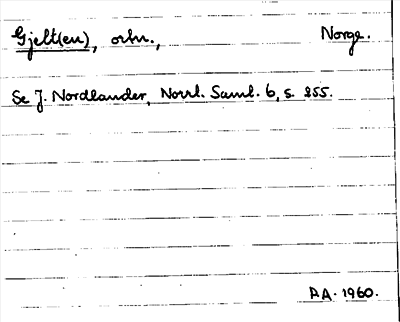 Gjelt(en), orln., Norge.
Se J. Nordlander, Norrl. Saml. 6, s. 255.
AA. 1960.